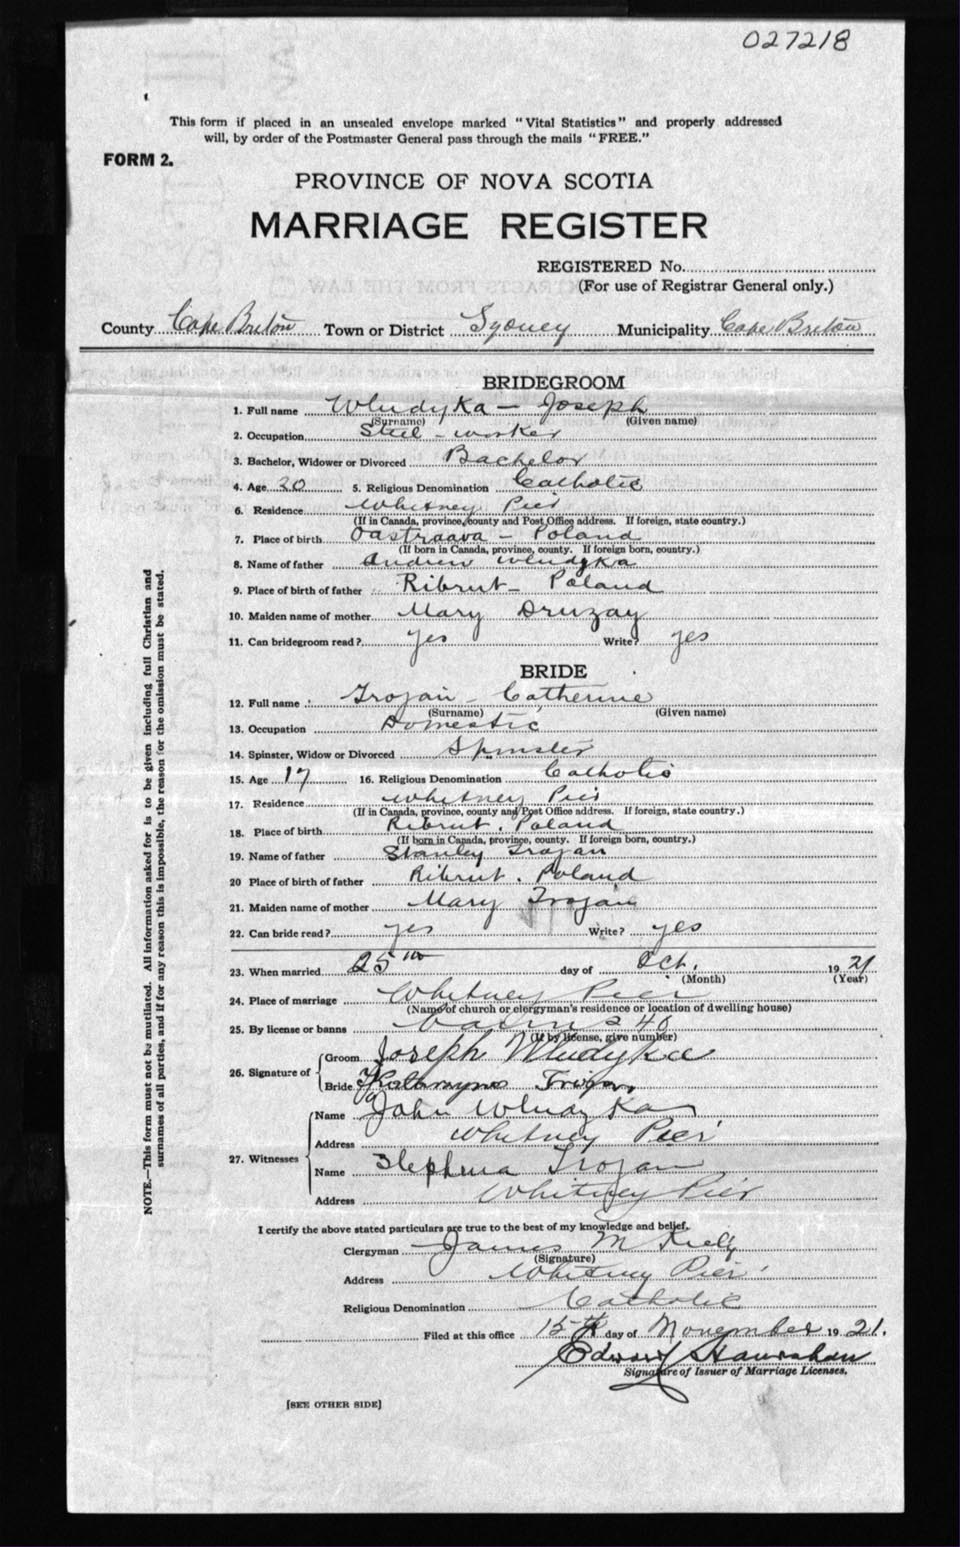 027218
This form if placed in an unsealed envelope marked "Vital Statistics" and properly addressed
will, by order of the Postmaster General pass through the mails "FREE."
FORM 2.
PROVINCE OF NOVA SCOTIA
MARRIAGE REGISTER
REGISTERED No.
(For use of Registrar General only.)
County Cape Breton Town or District Sydney Municipality Cape Breton
BRIDEGROOM
1. Full name Wludyka - Joseph
(Surname) (Given name)
2. Occupation Steel - worker
3. Bachelor, Widower or Divorced Bachelor
4. Age 20 5. Religious Denomination Catholic
6. Residence Whitney Pier
(If in Canada, province, county and Post Office address. If foreign, state country.)
7. Place of birth Oastraava - Poland
(If born in Canada, province, county. If foreign born, country.)
8. Name of father Andrew Wludyka
9. Place of birth of father Ribrut - Poland
10. Maiden name of mother Mary Druzay
11. Can bridegroom read? yes Write? yes
BRIDE
12. Full name Trojan - Catherine
(Surname) (Given name)
13. Occupation Domestic
14. Spinster, Widow or Divorced Spinster
15. Age 17 16. Religious Denomination Catholic
17. Residence Whitney Pier
(If in Canada, province, county and Post Office address. If foreign, state country.)
18. Place of birth Ribrut. Poland
(If born in Canada, province, county. If foreign born, country.)
19. Name of father Stanley Trojan
20 Place of birth of father Ribrut. Poland
21. Maiden name of mother Mary Trojan
22. Can bride read? yes Write? yes
23. When married 25th day of Oct. 1921
(Month) (Year)
24. Place of marriage Whitney Pier
(Name of church or clergyman's residence or location of dwelling house)
25. By license or banns
(If by license, give number)
26. Signature of Groom Joseph Wludyka
Bride
27. Witnesses Name John Wludyka
Address Whitney Pier
Name Trojan
Address Whitney Pier
I certify the above stated particulars are true to the best of my knowledge and belief.
Clergyman James M Kiely
(Signature)
Address Whitney Pier
Religious Denomination Catholic
Filed at this office 15th day of November 1921.
Edward
Signature of Issuer of Marriage Licenses.
[SEE OTHER SIDE]
NOTE.—This form must not be mutilated. All information asked for is to be given including full Christian and
surnames of all parties, and if for any reason this is impossible, the reason for the omission must be stated.